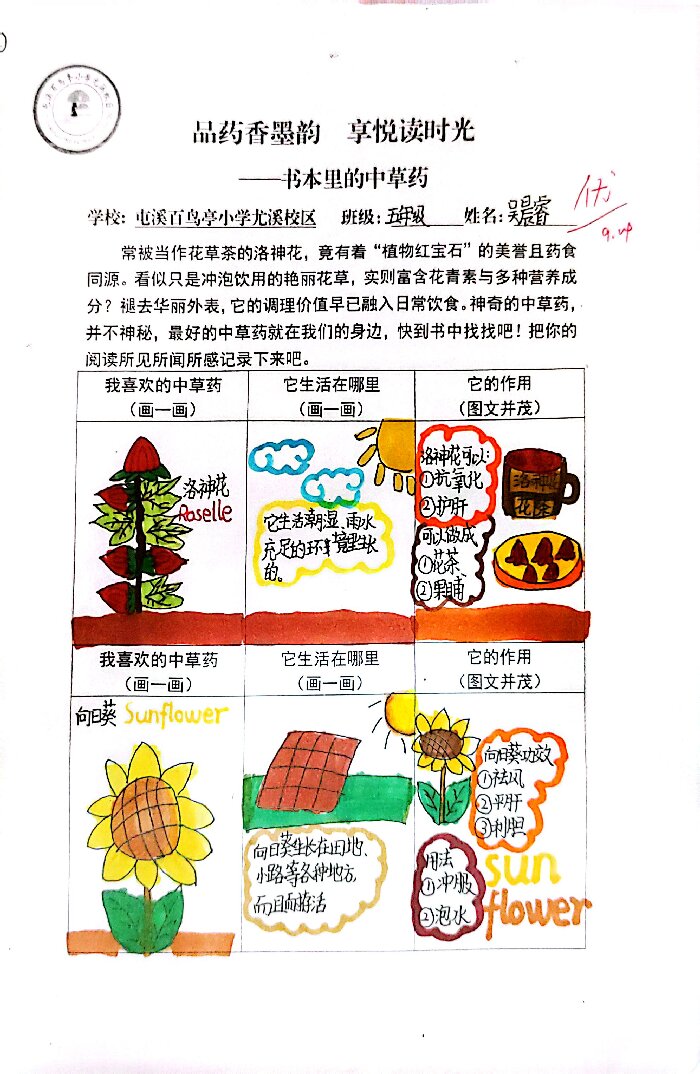 品药香墨韵 享悦读时光
——书本里的中草药
学校：屯溪百鸟亭小学尤溪校区 班级：五年级 姓名：吴晨睿
优
常被当作花草茶的洛神花，竟有着“植物红宝石”的美誉且药食
同源。看似只是冲泡饮用的艳丽花草，实则富含花青素与多种营养成
分？褪去华丽外表，它的调理价值早已融入日常饮食。神奇的中草药，
并不神秘，最好的中草药就在我们的身边，快到书中找找吧！把你的
阅读所见所闻所感记录下来吧。
我喜欢的中草药
（画一画）
它生活在哪里
（画一画）
它的作用
（图文并茂）
洛神花
Roselle
它生活潮湿、雨水
充足的环境里生长
的。
洛神花可以：
①抗氧化
②护肝
可以做成
①花茶
②果脯
洛神
花茶
我喜欢的中草药
（画一画）
它生活在哪里
（画一画）
它的作用
（图文并茂）
向日葵 Sunflower
向日葵生长在田地、
小路等各种地方，
而且耐活
向日葵功效
①祛风
②平肝
③利胆
用法
①冲服
②泡水
sun
flower